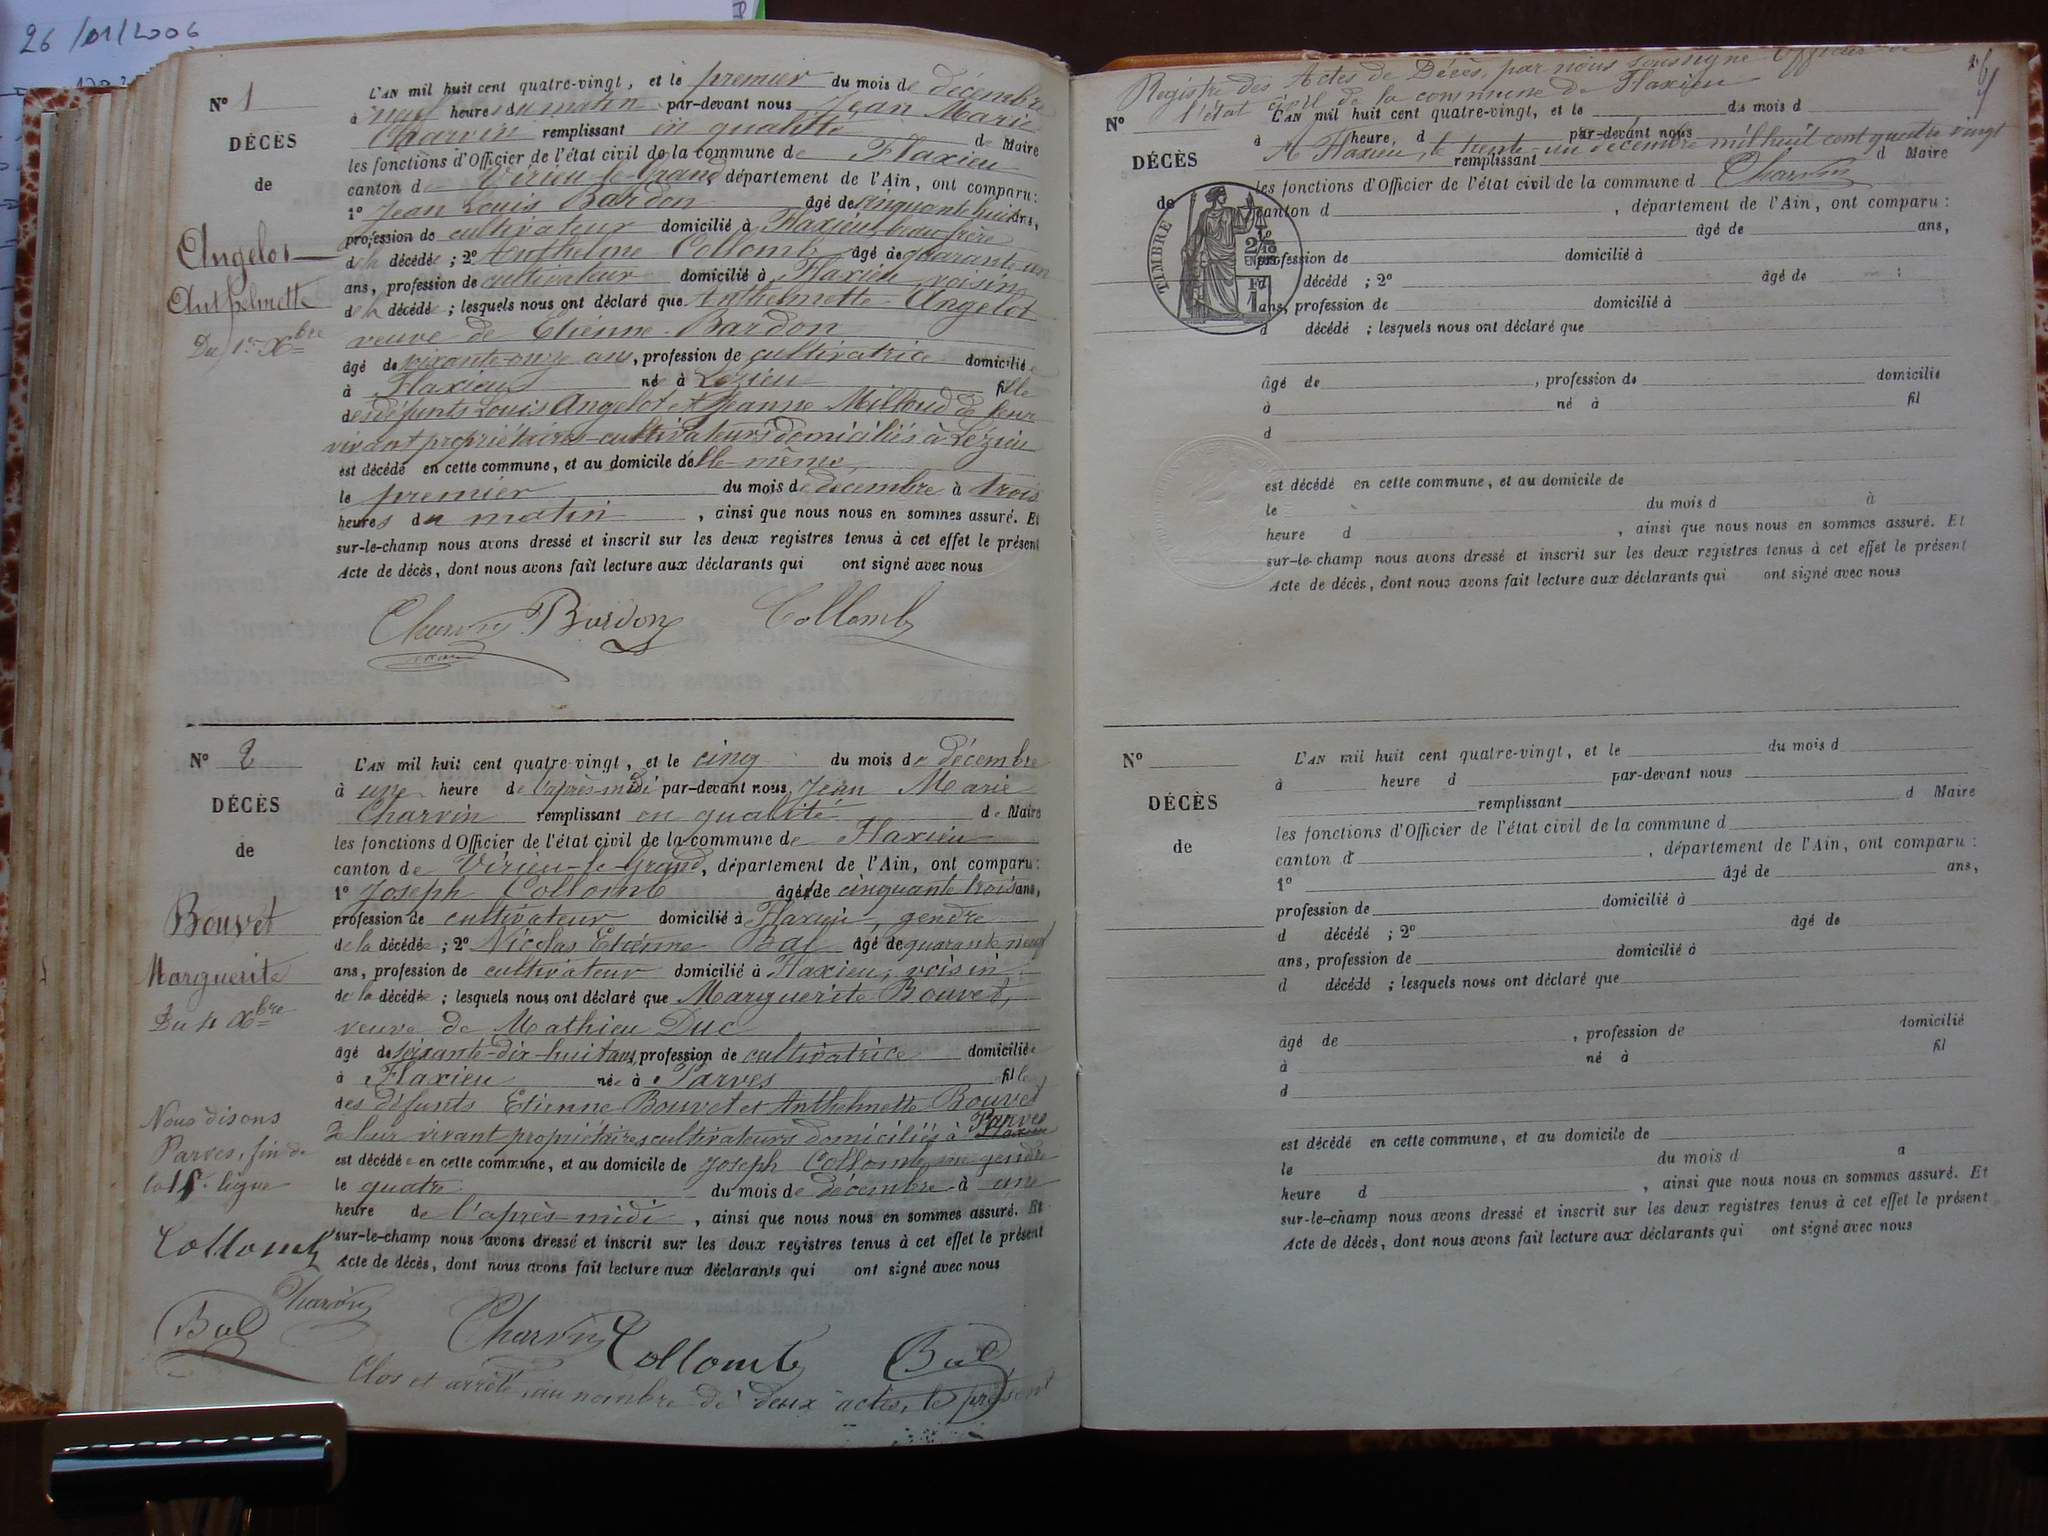 26/01/2006
N° 1
DÉCÈS
de
Angelot
Anthelmette
Du 1er Xbre
L'AN mil huit cent quatre-vingt, et le premier du mois de décembre
à neuf heure du matin par-devant nous Jean Marie
Charvin remplissant en qualité de Maire
les fonctions d'Officier de l'état civil de la commune de Flaxieu
canton de Virieu-le-Grand, département de l'Ain, ont comparu :
1° Jean Louis Bardon âgé de cinquante huit ans,
profession de cultivateur domicilié à Flaxieu, beau-frère
de la décédée ; 2° Anthelme Collomb âgé de quarante-un
ans, profession de cultivateur domicilié à Flaxieu, voisin
de la décédée ; lesquels nous ont déclaré que Anthelmette Angelot
veuve de Etienne Bardon
âgé de ans, profession de cultivatrice domiciliée
à Flaxieu née à Lézieu fille
des défunts Louis Angelot et Jeanne Millioud de leur
vivant propriétaires-cultivateurs domiciliés à Lézieu
est décédé en cette commune, et au domicile d'elle-même,
le premier du mois de décembre à trois
heures du matin, ainsi que nous nous en sommes assuré. Et
sur-le-champ nous avons dressé et inscrit sur les deux registres tenus à cet effet le présent
Acte de décès, dont nous avons fait lecture aux déclarants qui ont signé avec nous
Charvin Bardon Collomb
N° 2
DÉCÈS
de
Bouvet
Marguerite
Du 4 Xbre
Nous disons
Parves, fin de
la 15e ligne
Collomb
Charvin
Bal
L'AN mil huit cent quatre-vingt, et le cinq du mois de décembre
à une heure de l'après-midi par-devant nous Jean Marie
Charvin remplissant en qualité de Maire
les fonctions d'Officier de l'état civil de la commune de Flaxieu
canton de Virieu-le-Grand, département de l'Ain, ont comparu :
1° Joseph Collomb âgé de cinquante trois ans,
profession de cultivateur domicilié à Flaxieu, gendre
de la décédée ; 2° Nicolas Etienne Bal âgé de quarante neuf
ans, profession de cultivateur domicilié à Flaxieu, voisin
de la décédée ; lesquels nous ont déclaré que Marguerite Bouvet,
veuve de Mathieu Duc
âgé de soixante-dix-huit ans, profession de cultivatrice domiciliée
à Flaxieu née à Parves fille
des défunts Etienne Bouvet et Anthelmette Bouvet
de leur vivant propriétaires cultivateurs domiciliés à Parves Flaxieu
est décédée en cette commune, et au domicile de Joseph Collomb, son gendre
le quatre du mois de décembre à une
heure de l'après-midi, ainsi que nous nous en sommes assuré. Et
sur-le-champ nous avons dressé et inscrit sur les deux registres tenus à cet effet le présent
Acte de décès, dont nous avons fait lecture aux déclarants qui ont signé avec nous
Charvin Collomb Bal
Clos et arrêté, au nombre de deux actes, le présent
Registre des Actes de Décès, par nous soussigné Officier de
l'état civil de la commune de Flaxieu
A Flaxieu, le trente-un décembre mil huit cent quatre vingt
Charvin
N°
DÉCÈS
de
TIMBRE
L'AN mil huit cent quatre-vingt, et le du mois d
à heure, d par-devant nous
remplissant d Maire
les fonctions d'Officier de l'état civil de la commune d
canton d , département de l'Ain, ont comparu :
1° âgé de ans,
profession de domicilié à
d décédé ; 2° âgé de
ans, profession de domicilié à
d décédé ; lesquels nous ont déclaré que
âgé de , profession de domicilié
à né à fil
d
est décédé en cette commune, et au domicile de
le du mois d à
heure d , ainsi que nous nous en sommes assuré. Et
sur-le-champ nous avons dressé et inscrit sur les deux registres tenus à cet effet le présent
Acte de décès, dont nous avons fait lecture aux déclarants qui ont signé avec nous
N°
DÉCÈS
de
L'AN mil huit cent quatre-vingt, et le du mois d
à heure d par-devant nous
remplissant d Maire
les fonctions d'Officier de l'état civil de la commune d
canton d , département de l'Ain, ont comparu :
1° âgé de ans,
profession de domicilié à
d décédé ; 2° âgé de
ans, profession de domicilié à
d décédé ; lesquels nous ont déclaré que
âgé de , profession de domicilié
à né à fil
d
est décédé en cette commune, et au domicile de
le du mois d à
heure d , ainsi que nous nous en sommes assuré. Et
sur-le-champ nous avons dressé et inscrit sur les deux registres tenus à cet effet le présent
Acte de décès, dont nous avons fait lecture aux déclarants qui ont signé avec nous